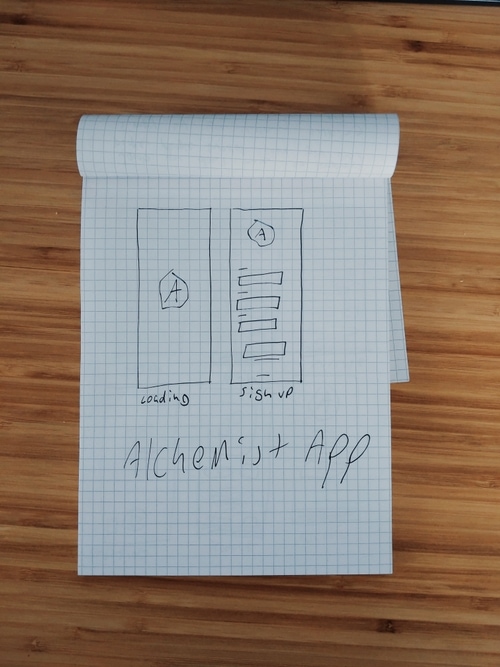 A
A
Loading
Sign up
Alchemist App